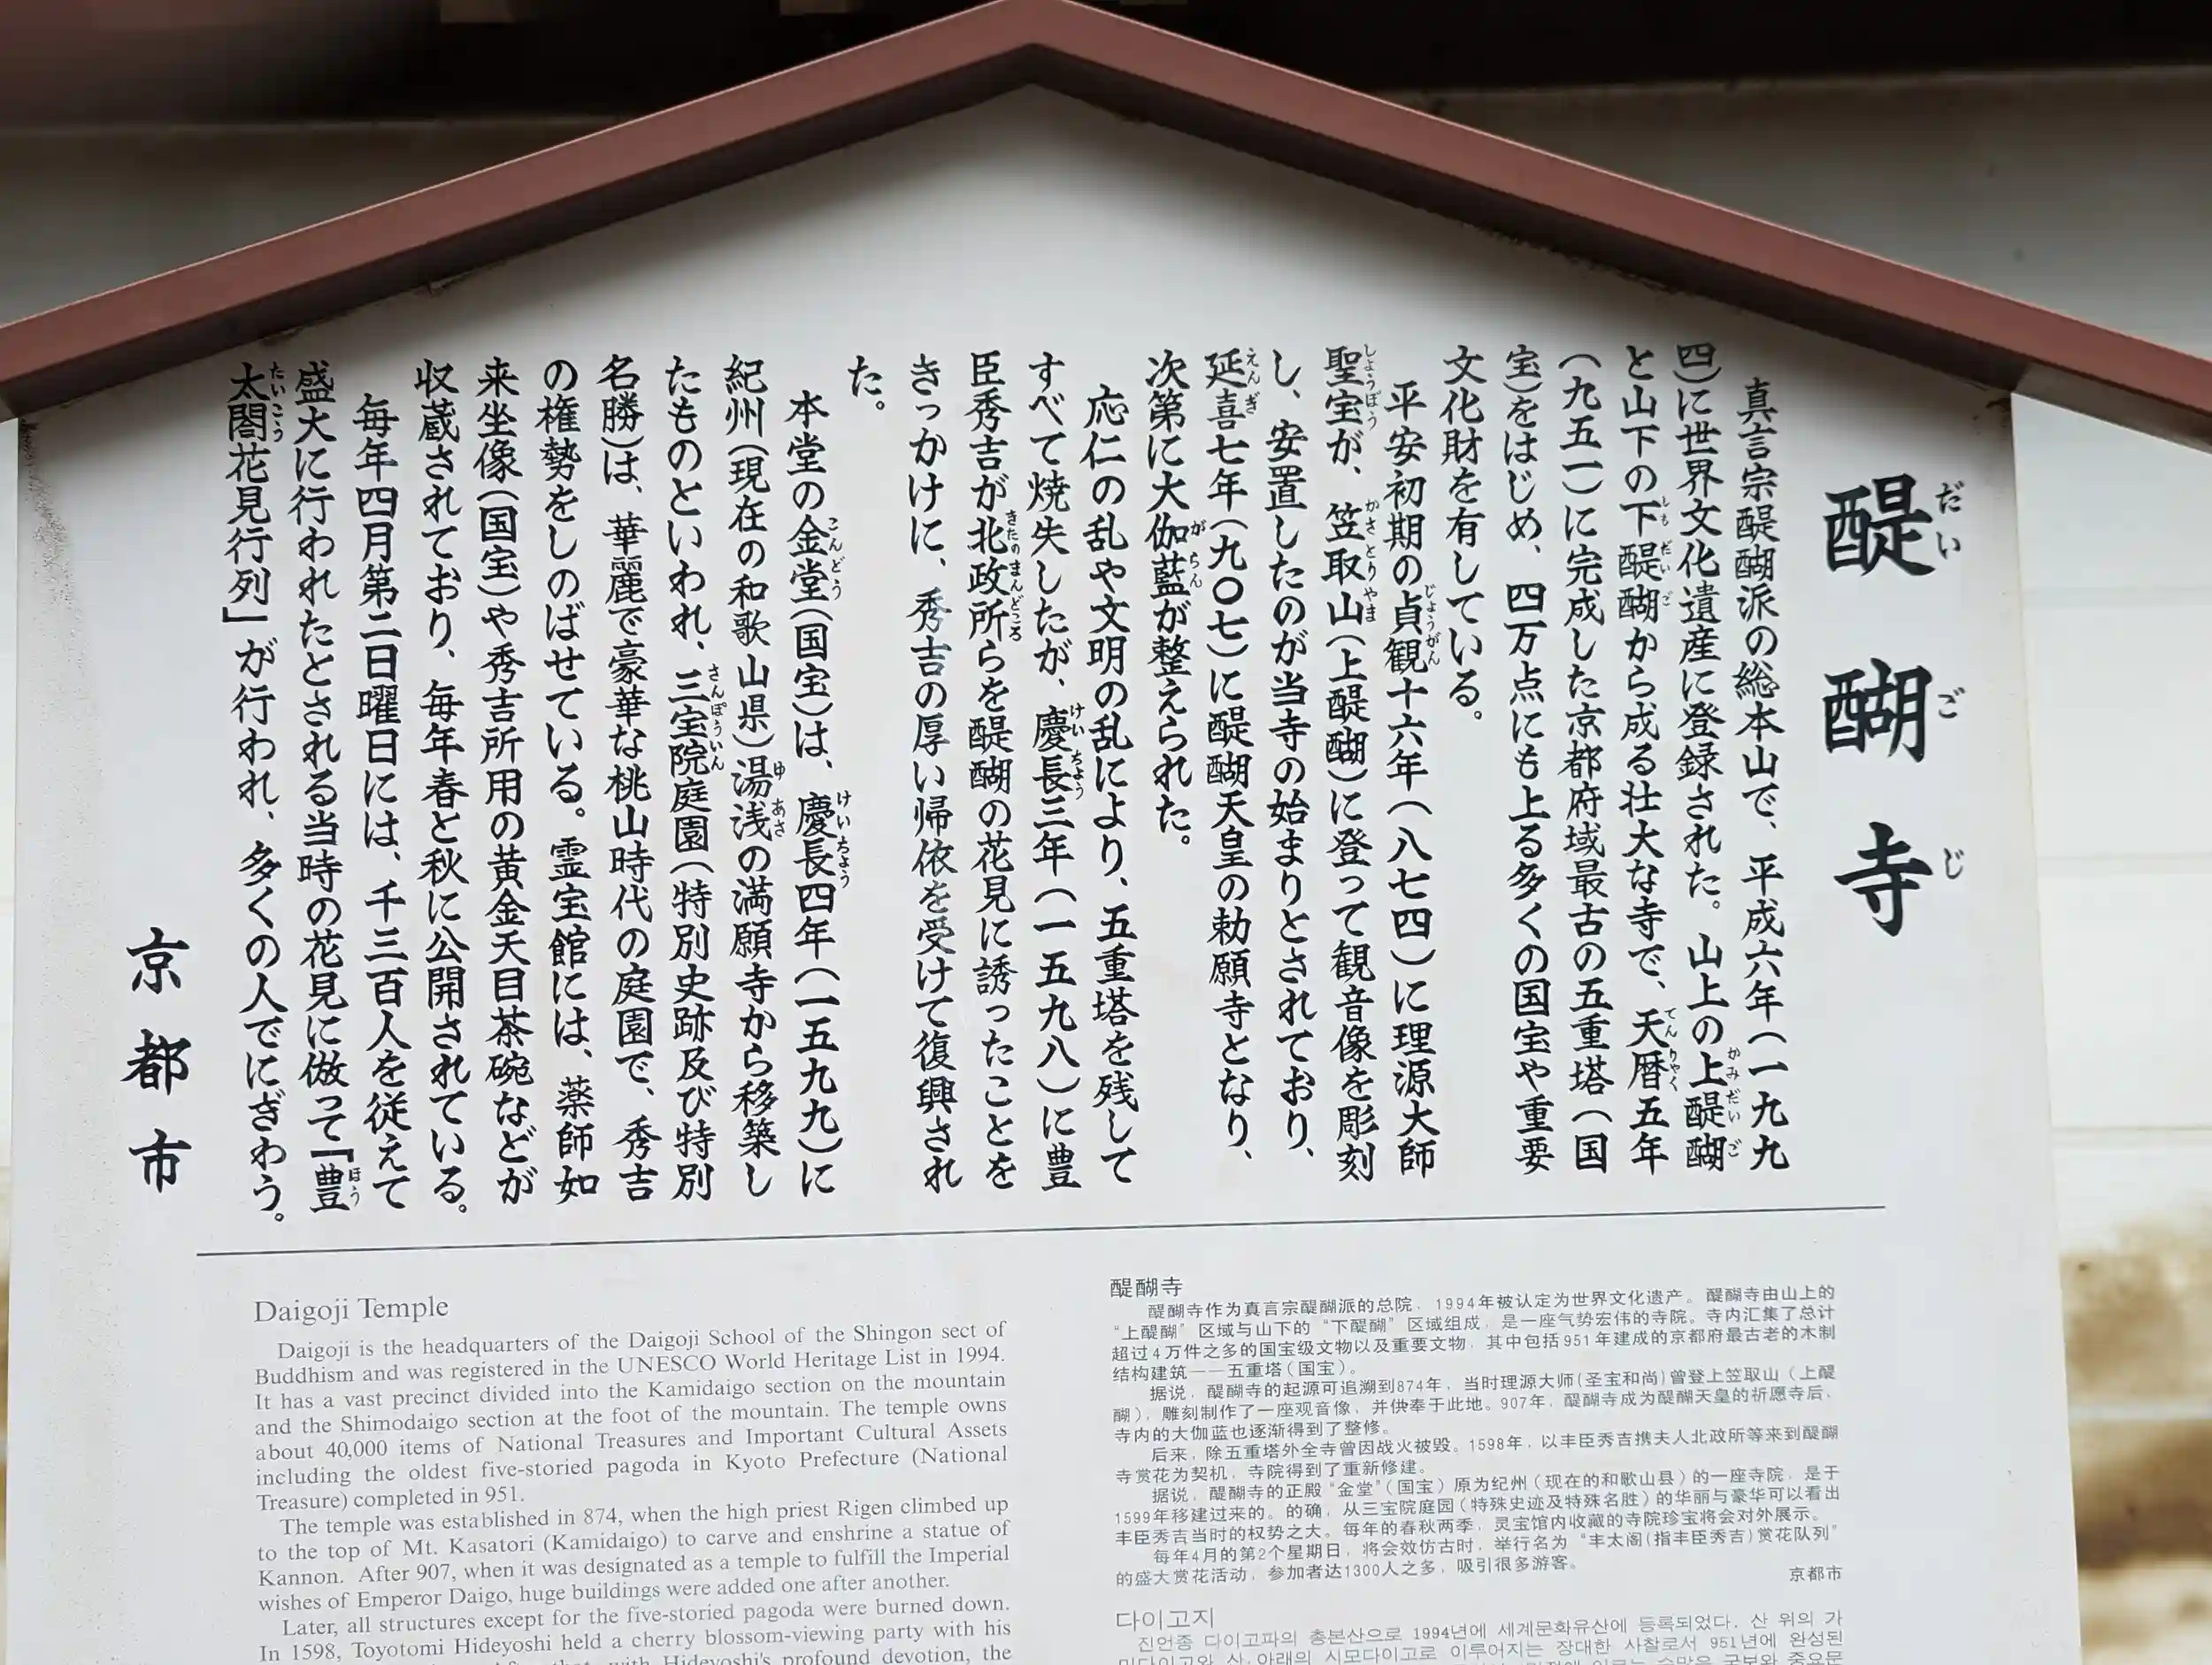 醍醐寺
だいごじ
真言宗醍醐派の総本山で、平成六年(一九九
四)に世界文化遺産に登録された。山上の上醍醐
かみだいご
と山下の下醍醐から成る壮大な寺で、天暦五年
しもだいご
てんりやく
(九五一)に完成した京都府域最古の五重塔(国
宝)をはじめ、四万点にも上る多くの国宝や重要
文化財を有している。
平安初期の貞観十六年(八七四)に理源大師
じょうがん
聖宝が、笠取山(上醍醐)に登って観音像を彫刻
しょうぼう
かさとりやま
し、安置したのが当寺の始まりとされており、
延喜七年(九〇七)に醍醐天皇の勅願寺となり、
えんぎ
次第に大伽藍が整えられた。
がらん
応仁の乱や文明の乱により、五重塔を残して
すべて焼失したが、慶長三年(一五九八)に豊
けいちょう
臣秀吉が北政所らを醍醐の花見に誘ったことを
きたのまんどころ
きっかけに、秀吉の厚い帰依を受けて復興され
た。
本堂の金堂(国宝)は、慶長四年(一五九九)に
こんどう
けいちょう
紀州(現在の和歌山県)湯浅の満願寺から移築し
ゆあさ
たものといわれ、三宝院庭園(特別史跡及び特別
さんぽういん
名勝)は、華麗で豪華な桃山時代の庭園で、秀吉
の権勢をしのばせている。霊宝館には、薬師如
来坐像(国宝)や秀吉所用の黄金天目茶碗などが
収蔵されており、毎年春と秋に公開されている。
毎年四月第二日曜日には、千三百人を従えて
盛大に行われたとされる当時の花見に倣って「豊
ほう
太閤花見行列」が行われ、多くの人でにぎわう。
たいこう
京都市
Daigoji Temple
Daigoji is the headquarters of the Daigoji School of the Shingon sect of
Buddhism and was registered in the UNESCO World Heritage List in 1994.
It has a vast precinct divided into the Kamidaigo section on the mountain
and the Shimodaigo section at the foot of the mountain. The temple owns
about 40,000 items of National Treasures and Important Cultural Assets
including the oldest five-storied pagoda in Kyoto Prefecture (National
Treasure) completed in 951.
The temple was established in 874, when the high priest Rigen climbed up
to the top of Mt. Kasatori (Kamidaigo) to carve and enshrine a statue of
Kannon. After 907, when it was designated as a temple to fulfill the Imperial
wishes of Emperor Daigo, huge buildings were added one after another.
Later, all structures except for the five-storied pagoda were burned down.
In 1598, Toyotomi Hideyoshi held a cherry blossom-viewing party with his
with Hideyoshi's profound devotion, the
醍醐寺
醍醐寺作为真言宗醍醐派的总院，1994年被认定为世界文化遗产。醍醐寺由山上的
“上醍醐”区域与山下的“下醍醐”区域组成，是一座气势宏伟的寺院。寺内汇集了总计
超过4万件之多的国宝级文物以及重要文物，其中包括951年建成的京都府最古老的木制
结构建筑——五重塔(国宝)。
据说，醍醐寺的起源可追溯到874年，当时理源大师(圣宝和尚)曾登上笠取山（上醍
醐），雕刻制作了一座观音像，并供奉于此地。907年，醍醐寺成为醍醐天皇的祈愿寺后，
寺内的大伽蓝也逐渐得到了整修。
后来，除五重塔外全寺曾因战火被毁。1598年，以丰臣秀吉携夫人北政所等来到醍醐
寺赏花为契机，寺院得到了重新修建。
据说，醍醐寺的正殿“金堂”(国宝）原为纪州（现在的和歌山县）的一座寺院，是于
1599年移建过来的。的确，从三宝院庭园(特殊史迹及特殊名胜）的华丽与豪华可以看出
丰臣秀吉当时的权势之大。每年的春秋两季，灵宝馆内收藏的寺院珍宝将会对外展示。
每年4月的第2个星期日，将会效仿古时，举行名为“丰太阁(指丰臣秀吉)赏花队列”
的盛大赏花活动，参加者达1300人之多，吸引很多游客。
京都市
다이고지
진언종 다이고파의 총본산으로 1994년에 세계문화유산에 등록되었다. 산 위의 가
미다이고와 산 아래의 시모다이고로 이루어지는 장대한 사찰로서 951년에 완성된